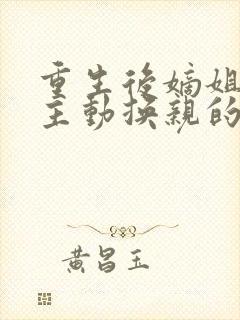 重生後嫡姐
主動換親的
黃昌玉